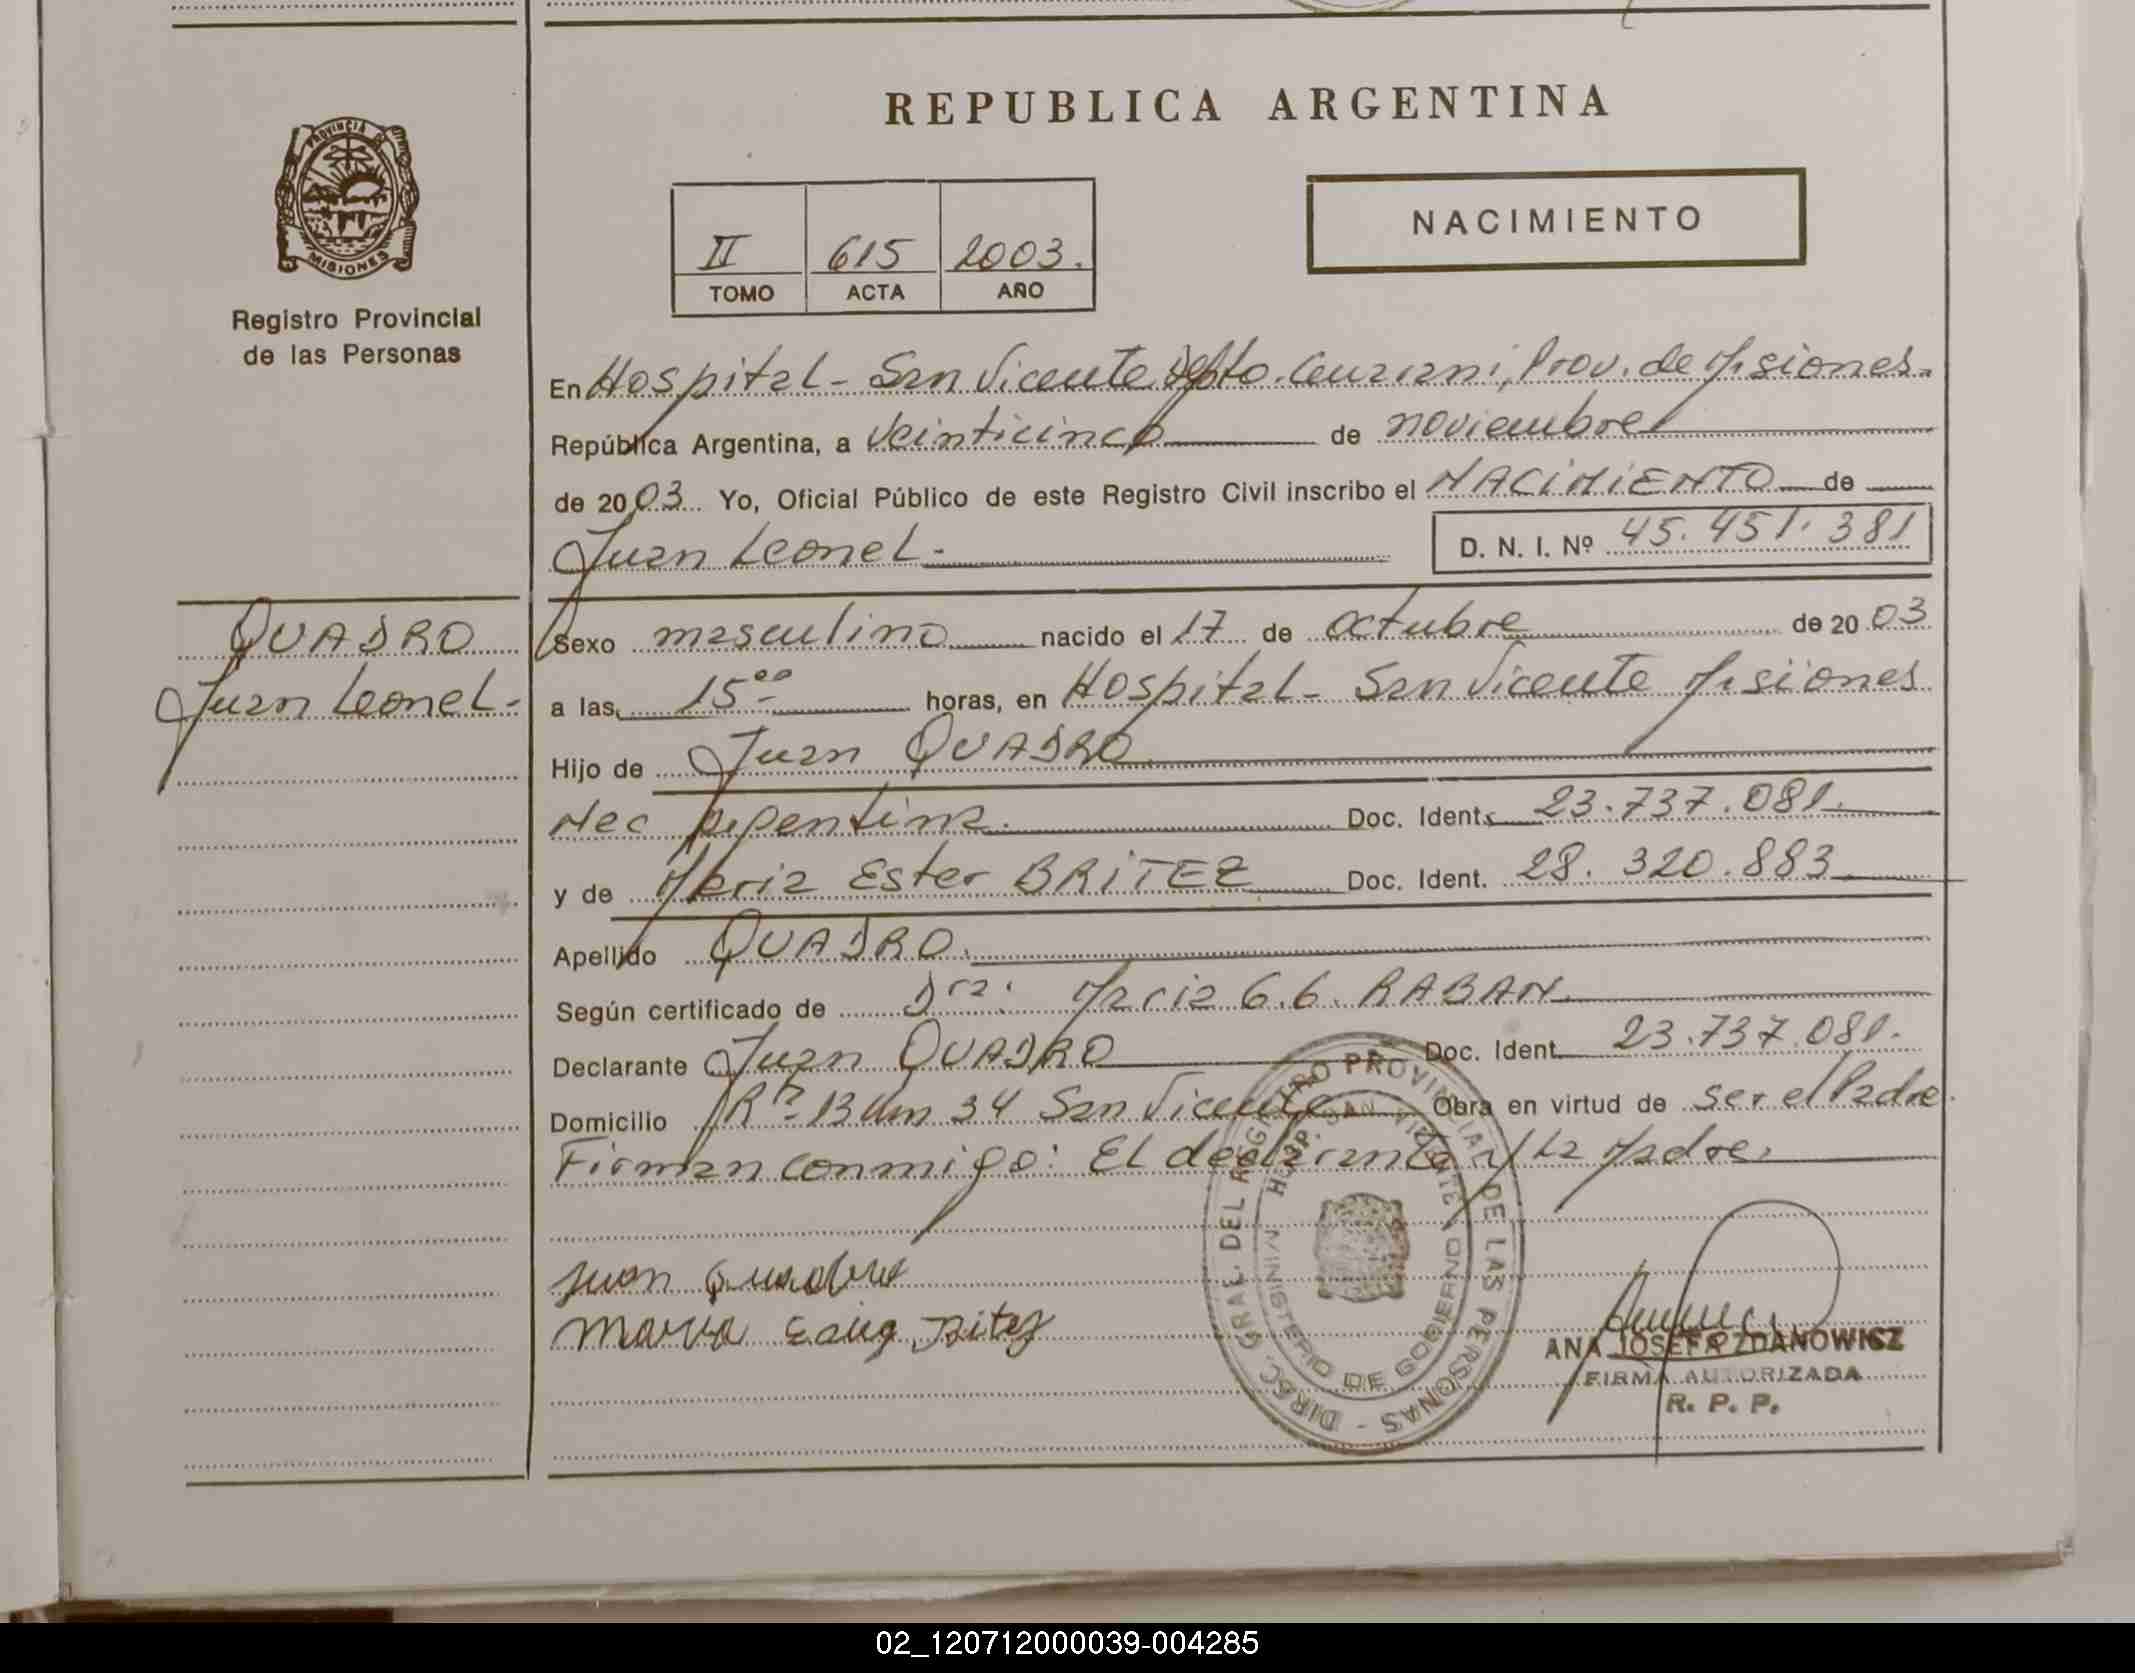 REPUBLICA ARGENTINA
PROVINCIA DE
MISIONES
Registro Provincial
de las Personas
NACIMIENTO
II 615 2003.
TOMO ACTA AÑO
En Hospital - San Vicente Dpto. Guarani, Prov. de Misiones.
República Argentina, a veinticinco de noviembre
de 2003 Yo, Oficial Público de este Registro Civil inscribo el NACIMIENTO de
Juan Leonel.
D. N. I. Nº 45.451.381
QUADRO
Juan Leonel -
Sexo masculino nacido el 17 de octubre de 2003
a las 15⁰⁰ horas, en Hospital - San Vicente Misiones
Hijo de Juan QUADRO
Nac Argentina. Doc. Ident. 23.737.081.
y de Maria Ester BRITEZ Doc. Ident. 28.320.883
Apellido QUADRO.
Según certificado de Dra. Maria G.G. RABAN
Declarante Juan QUADRO Doc. Ident. 23.737.081.
Domicilio Rª 13 Km 34 San Vicente Obra en virtud de ser el Padre.
Firman conmigo: El declarante y La Madre.
Juan Quadro
DIREC. GRAL. DEL REGISTRO PROVINCIAL DE LAS PERSONAS -
HOSP. SAN VICENTE
MINISTERIO DE GOBIERNO
ANA JOSEFA ZDANOWICZ
FIRMA AUTORIZADA
R. P. P.
02_120712000039-004285